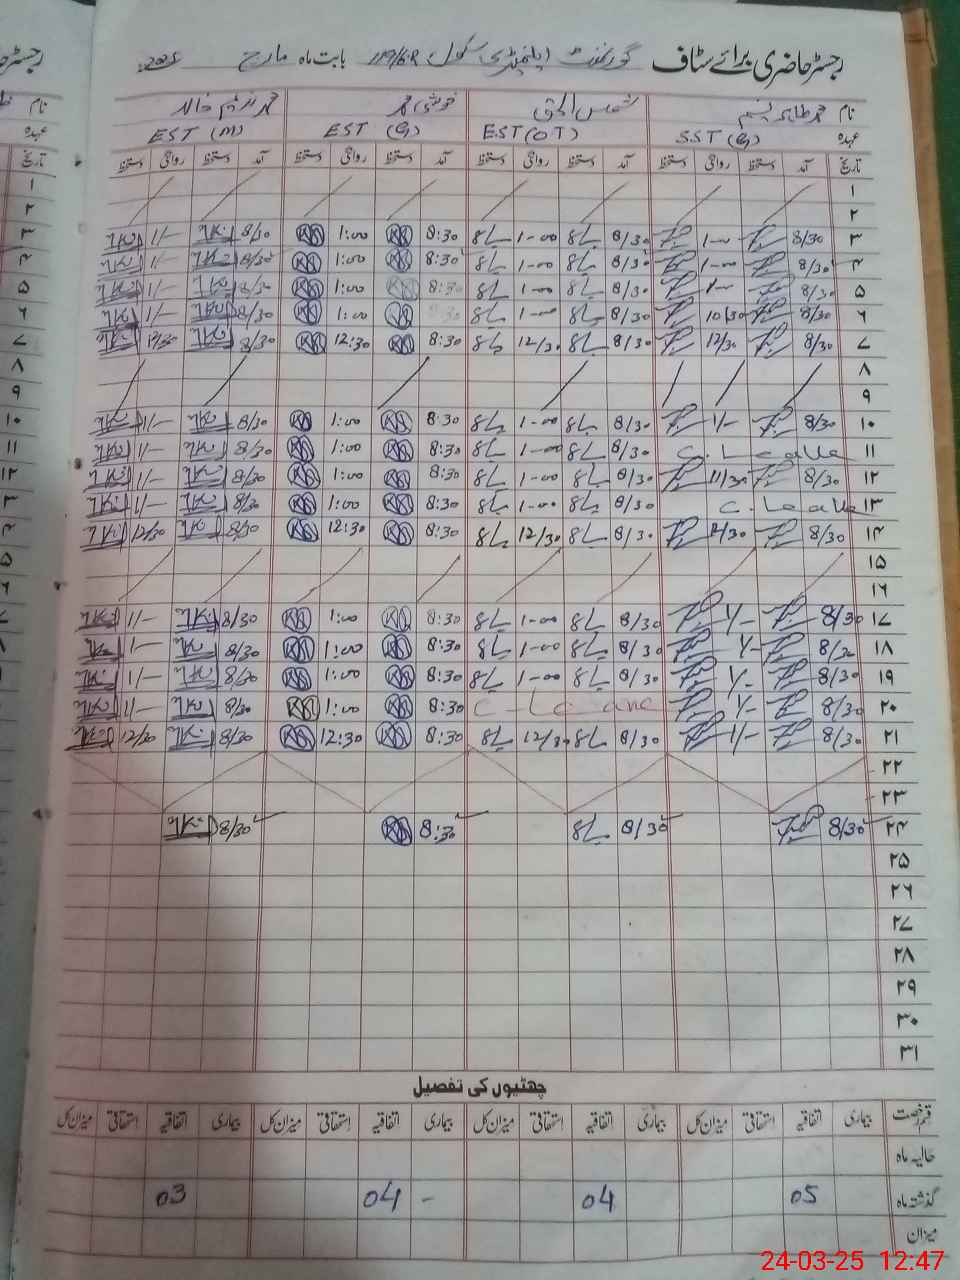 رجسٹر حاضری برائے سٹاف گورنمنٹ ایلیمنٹری سکول 119/6.R بابت ماہ مارچ 2025
نام محمد طاہر شمس الحق خوشی محمد محمد ندیم خالد
عہدہ SST (G) EST (OT) EST (G) EST (M)
تاریخ آمد دستخط روانگی دستخط آمد دستخط روانگی دستخط آمد دستخط روانگی دستخط آمد دستخط روانگی دستخط
۱
۲
۳ 8/30 1-00 8/30 1-00 8:30 1:00 8/30 1/-
۴ 8/30 1-00 8/30 1-00 8:30 1:00 8/30 1/-
۵ 8/30 1- 8/30 1-00 8:30 1:00 8/30 1/-
۶ 8/30 10/30 8/30 1-00 8:30 1:00 8/30 1/-
۷ 8/30 12/30 8/30 12/30 8:30 12:30 8/30 12/30
۸
۹
۱۰ 8/30 1/- 8/30 1-00 8:30 1:00 8/30 1/-
۱۱ C. Leave 8/30 1-00 8:30 1:00 8/30 1/-
۱۲ 8/30 11/30 8/30 1-00 8:30 1:00 8/30 1/-
۱۳ C. Leave 8/30 1-00 8:30 1:00 8/30 1/-
۱۴ 8/30 12/30 8/30 12/30 8:30 12:30 8/30 12/30
۱۵
۱۶
۱۷ 8/30 1/- 8/30 1-00 8:30 1:00 8/30 1/-
۱۸ 8/30 1/- 8/30 1-00 8:30 1:00 8/30 1-
۱۹ 8/30 1/- 8/30 1-00 8:30 1:00 8/30 1/-
۲۰ 8/30 1/- C-Leave 8:30 1:00 8/30 1/-
۲۱ 8/30 1/- 8/30 12/30 8:30 12:30 8/30 12/30
۲۲
۲۳
۲۴ 8/30 8/30 8:30 8/30
۲۵
۲۶
۲۷
۲۸
۲۹
۳۰
۳۱
چھٹیوں کی تفصیل
قسم رخصت بیماری اتفاقیہ استحقاقی میزان کل بیماری اتفاقیہ استحقاقی میزان کل بیماری اتفاقیہ استحقاقی میزان کل بیماری اتفاقیہ استحقاقی میزان کل
حالیہ ماہ
گذشتہ ماہ 05 04 - 04 03
میزان
24-03-25 12:47